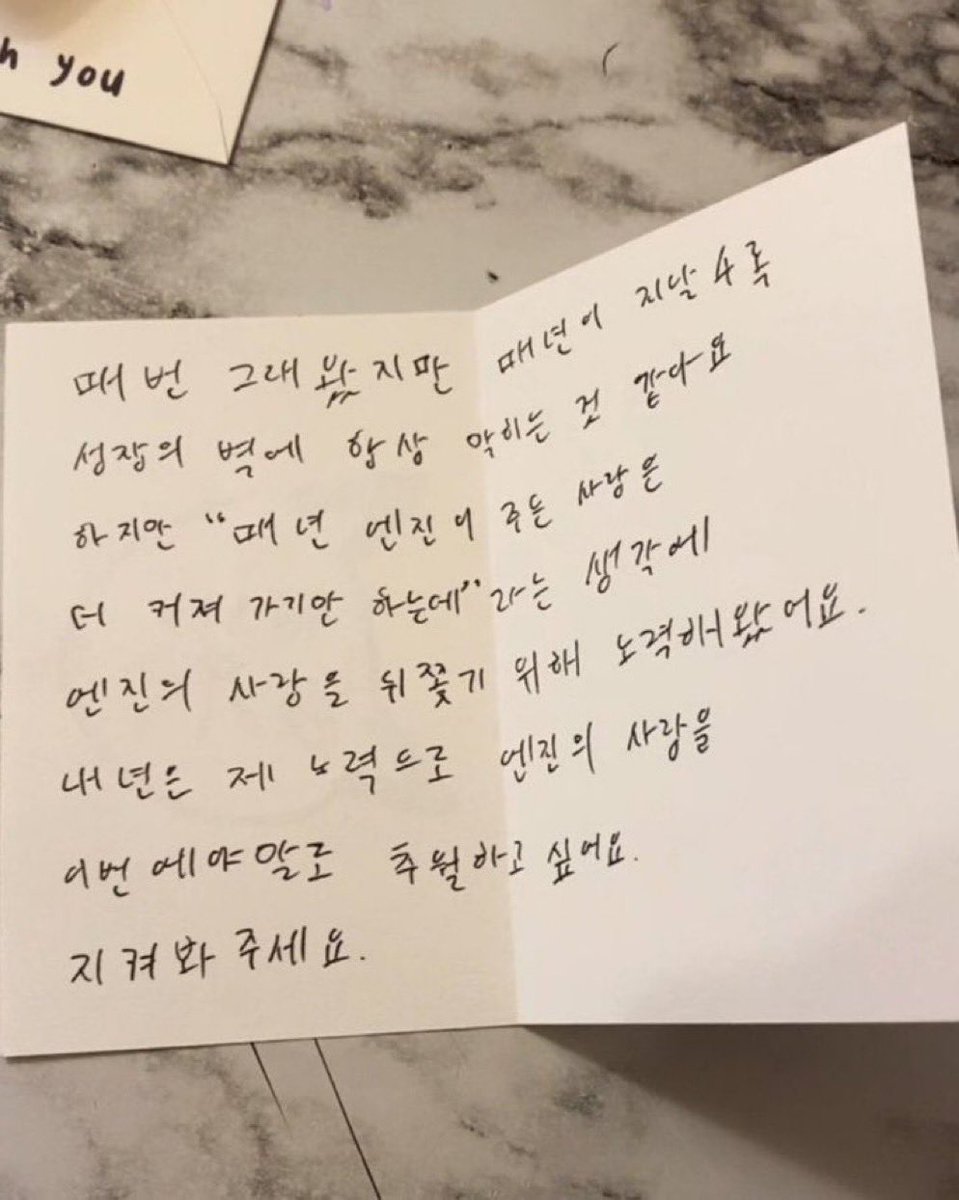 h you
매번 그래왔지만 매년이 지날수록
성장의 벽에 항상 막히는 것 같다요
하지만 “매년 엔진이 주는 사랑은
더 커져 가기만 하는데”라는 생각에
엔진의 사랑을 뒤쫓기 위해 노력해왔어요.
내년은 제 노력으로 엔진의 사랑을
이번에야말로 추월하고 싶어요.
지켜봐주세요.